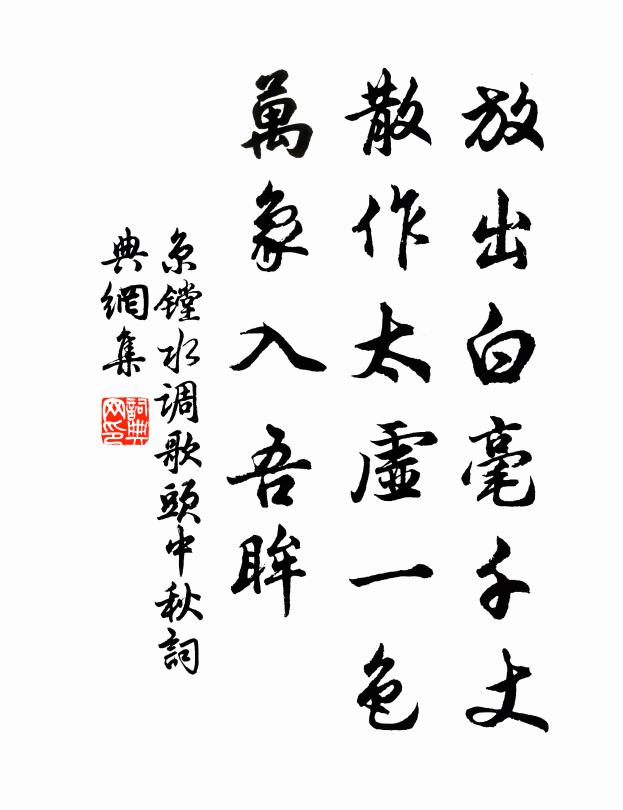 放出白毫千丈
散作太虛一色
萬象入吾眸
京鏜水调歌頭中秋詞
典網集
詞典网印